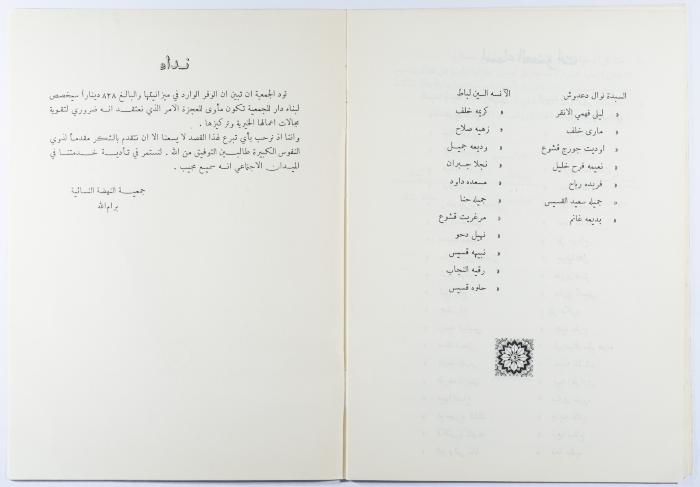 السيدة نوال دعدوش
» ليلى فهمي الانقر
» مارى خلف
» اوديت جورج قشوع
» نعيمه فرح خليل
» فريده رباح
» جميله سعيد القسيس
» بديعه غانم
الآنسه الين لباط
» كريمه خلف
» زهيه صلاح
» وديعه جميل
» نجلا جبران
» مسعده داود
» جميله حنا
» مرغريت قشوع
» نهيل دحو
» نبيهه قسيس
» رقيه النجاب
» حلوه قسيس
نداء
تود الجمعية ان تبين ان الوفر الوارد في ميزانيتها والبالغ ٨٢٨ دينارا سيخصص
لبناء دار للجمعية تكون مأوى للعجزة الامر الذي نعتقد انه ضروري لتقوية
مجالات اعمالها الخيرية وتركيزها .
واننا اذ نرحب بأي تبرع لهذا القصد لا يسعنا الا ان نتقدم بالشكر مقدماً لذوي
النفوس الكبيرة طالبين التوفيق من الله . لنستمر في تأدية خدمتنا في
الميدان الاجتماعي انه سميع مجيب .
جمعية النهضة النسائية
برام الله